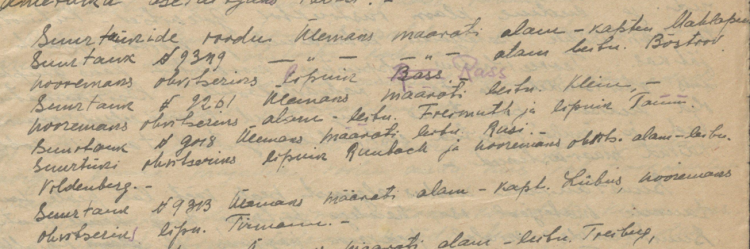 Suurtankide roodu ülemaks määrati alam-kapten
Suurtank № 9349 — " — — " — alam leitn. Böstrov
nooremaks ohvitseriks lipnik Bass. Rass
Suurtank № 2201 ülemaks määrati leitn. Klein, -
nooremaks ohvitseriks alam-leitn. Freimuth ja lipnik Tamm.
Suurtank № 9018 ülemaks määrati leitn. Rusi. -
Suurtanki ohvitseriks lipnik Runback ja nooremaks ohvts. alam-leitn.
Voldenberg. -
Suurtank № 9313 ülemaks määrati alam-kapt. Lübius, nooremaks
ohvitseriks lipn. Tirmann. -
määrati alam-leitn. Treiberg,